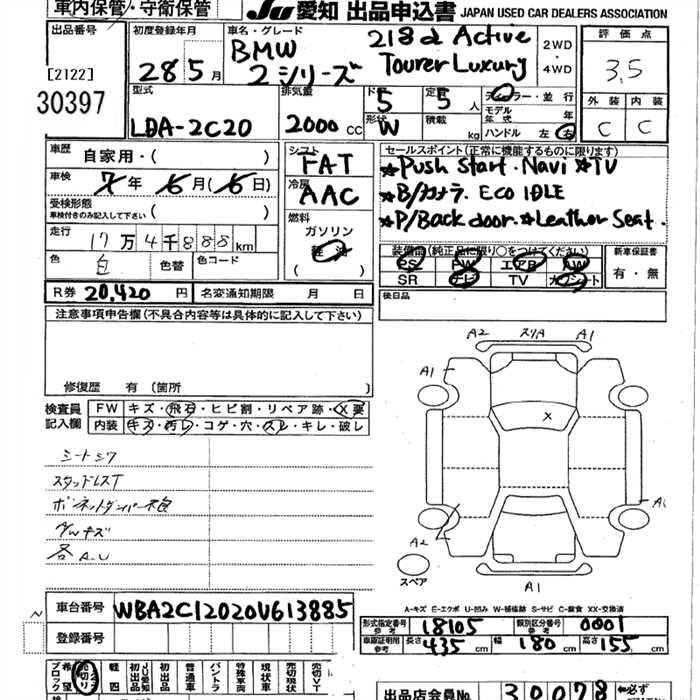 車内保管・守衛保管
JU 愛知 出品申込書 JAPAN USED CAR DEALERS ASSOCIATION
出品番号
[2122]
30397
初度登録年月
28 5月
車名・グレード
BMW
2シリーズ
218d Active
Tourer Luxury
2WD
・
4WD
評価点
3.5
外装 内装
C C
型式
LDA-2C20
排気量
2000 cc
ドア
5
定員
5人
形状
W
積載
kg
ディーラー・並行
モデル年式
ハンドル 左・右
車歴
自家用・( )
車検
7年 6月(6日)
受検形態
車検付きのみ記入して下さい ( )
走行
17万4千888km
色
白
色替
色コード
シフト
FAT
冷房
AAC
燃料
ガソリン
軽油
( )
セールスポイント(正常に機能するものに限ります)
★Push Start・Navi★TV
★B/カメラ. Eco IDLE
★P/Back door・★Leather Seat.
装備品(純正品に限り○をつけてください)
PS PW エアB AW
SR ナビ TV
新車保証書
有・無
後日品
R券 20,420円
名変通知期限 月 日
注意事項申告欄(不具合内容等は具体的に記入して下さい)
修復歴 有 (箇所
検査員
記入欄
FW キズ・飛石・ヒビ割・リペア跡・X要
内装 キズ・汚レ・コゲ・穴・スレ・キレ・破レ
シートシワ
スタッドレスT
AWキズ
各A.U
A2 スリA A1
A1
X
A2
A1
スペア
A-キズ E-エクボ U-凹み W-補修跡 S-サビ C-腐食 XX-交換済
車台番号 WBA2C12020V613885
登録番号
型式指定番号
参考
18105
類別区分番号
参考
0001
車庫証明用
参考
長さ 435cm
幅 180cm
高さ 155cm
希望ブロック
売切り
軽四
JU愛知
普通車
バントラ
特殊車両
現状車
売切現状
売切VT
出品店会員No. 30078
←必ず